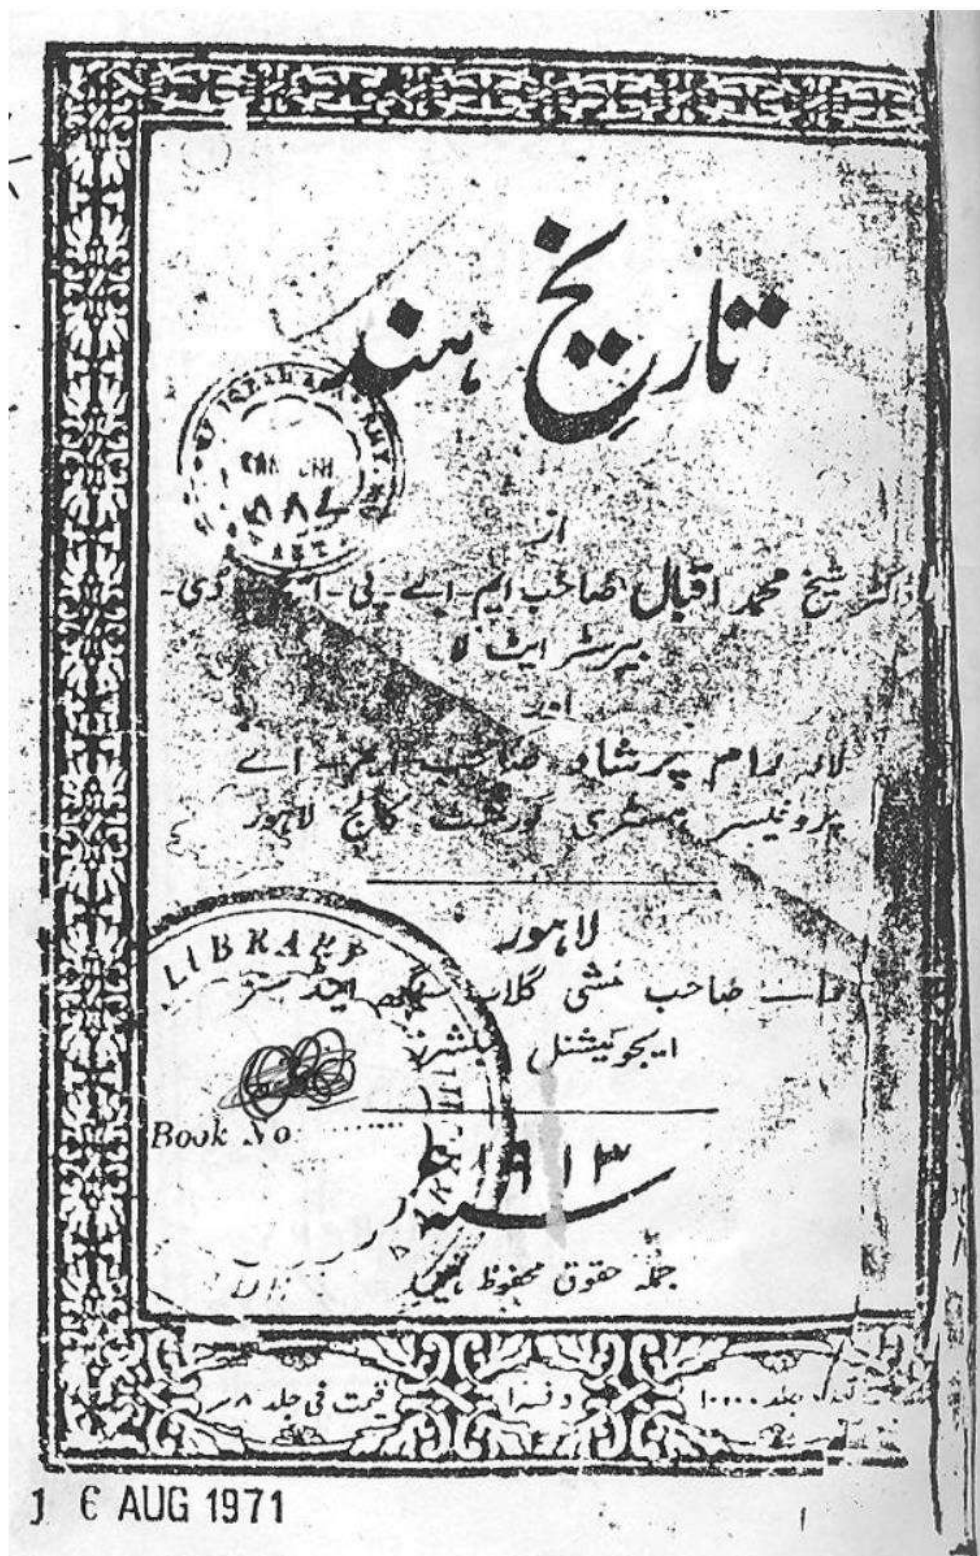 تاریخ ہند
از
ڈاکٹر شیخ محمد اقبال صاحب ایم-اے-پی-ایچ-ڈی-
بیرسٹر ایٹ لا
اور
لالہ رام پرشاد صاحب ایم-اے
پروفیسر ہسٹری گورنمنٹ کالج لاہور
لاہور
صاحب منشی گلاب سنگھ اینڈ سنز
ایجوکیشنل پبلشرز
۱۹۱۳
جملہ حقوق محفوظ ہیں
جلد ۱۰۰۰۰
دفعہ ۱
قیمت فی جلد ۸
LIBRARY
Book No
۸۸۷
1 6 AUG 1971